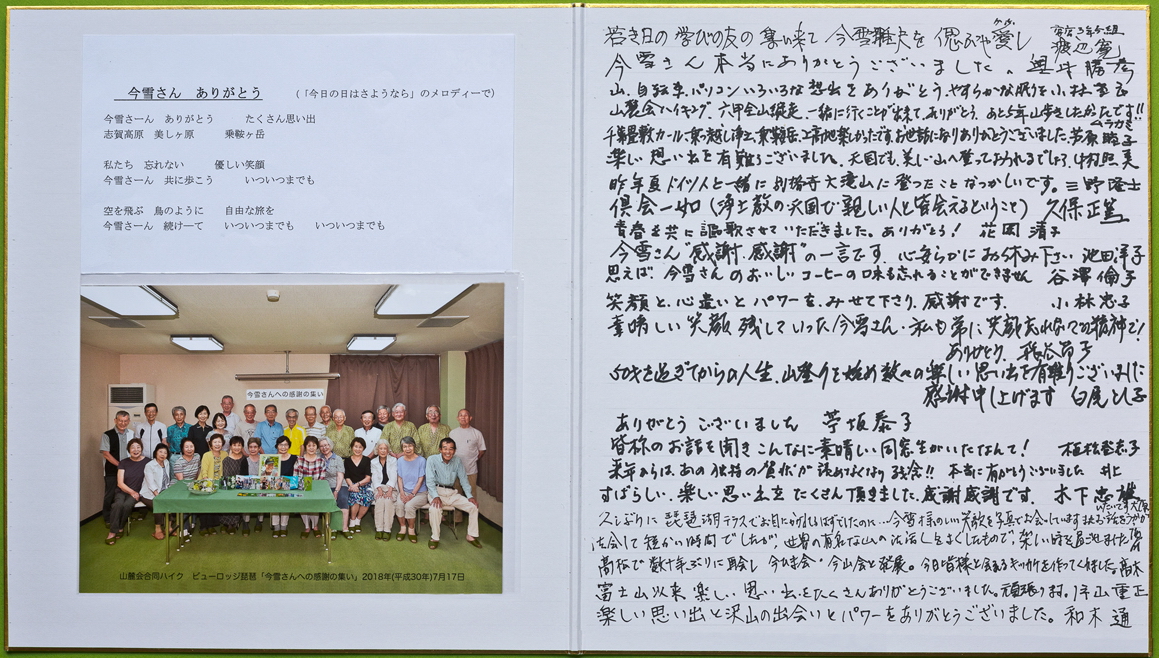 今雪さん　ありがとう　（「今日の日はさようなら」のメロディーで）
今雪さーん　ありがとう　たくさん思い出
志賀高原　美しヶ原　乗鞍ヶ岳
私たち　忘れない　優しい笑顔
今雪さーん　共に歩こう　いついつまでも
空を飛ぶ　鳥のように　自由な旅を
今雪さーん　続けーて　いついつまでも　いついつまでも
今雪さんへの感謝の集い
山麓会合同ハイク　ビューロッジ琵琶「今雪さんへの感謝の集い」2018年(平成30年)7月17日
若き日の学びの友の集い来て今雪雅夫を偲ぶや愛し
今雪さん本当にありがとうございました。奥井勝彦
山、自転車、パソコンいろいろな想出をありがとう、やすらかな眠りを
山麓会ハイキング、六甲全山縦走、一緒に行くことが出来て、ありがとう、あと5年山歩きしたかったです!!
千畳敷カール、乗越し浄土、上高地楽しかったです。お世話になりありがとうございました。
楽しい思い出を有難うございました。天国でも、美しい山へ登っておられるでしょう、
昨年夏ドイツ人と一緒に大滝山に登ったことなつかしいです。三野隆士
倶会一処(浄土教の天国で親しい人と皆会えるということ)久保正
青春を共に謳歌させていただきました。ありがとう！花岡清子
今雪さん"感謝、感謝"の一言です。心安らかにお休み下さい池田洋子
思えば、今雪さんのおいしいコーヒーの味も忘れることができません谷澤倫子
笑顔と、心遣いとパワーを、みせて下さり、感謝です。小林忠子
素晴しい笑顔残していった今雪さん、私も常に笑顔忘れないでの精神で！
ありがとう、
50才を過ぎてからの人生、山登りを始め数々の楽しい思い出を有難うございました
感謝申し上げます白尾とし子
ありがとうございました 泰子
皆称のお話を聞きこんなに素晴しい同窓生がいたなんて！
来年からは、あの独特の賀状が読めなくなり残念!!本当に有がとうございました 井上
すばらしい、楽しい思い出をたくさん頂きました。感謝感謝です。木下忠雄
久しぶりに琵琶湖テラスでお目にかかれるはずでしたのに…今雪様の
短かい時間でしたが、世界の有名な山の
高校で数十年ぶりに再会し今日皆様と会えるキッカケを作ってくれました。高木
富士山以来楽しい思い出をたくさんありがとうございました。頑張ります。重正
楽しい思い出と沢山の出会いとパワーをありがとうございました。和木通